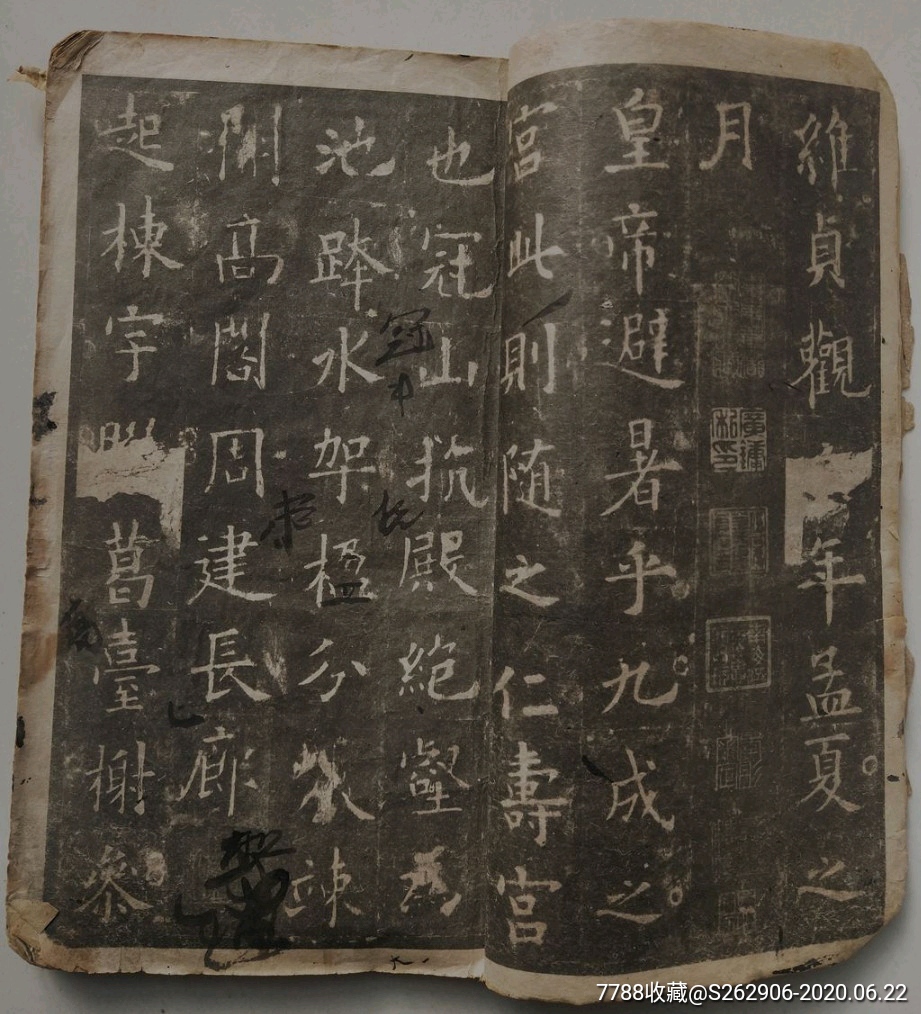 維貞觀六年孟夏之
月
皇帝避暑乎九成之
宮此則隨之仁壽宮
也冠山抗殿絕壑爲
池跨水架楹分巖竦
闕高閣周建長廊
起棟宇葛臺榭參
7788收藏@S262906-2020.06.22